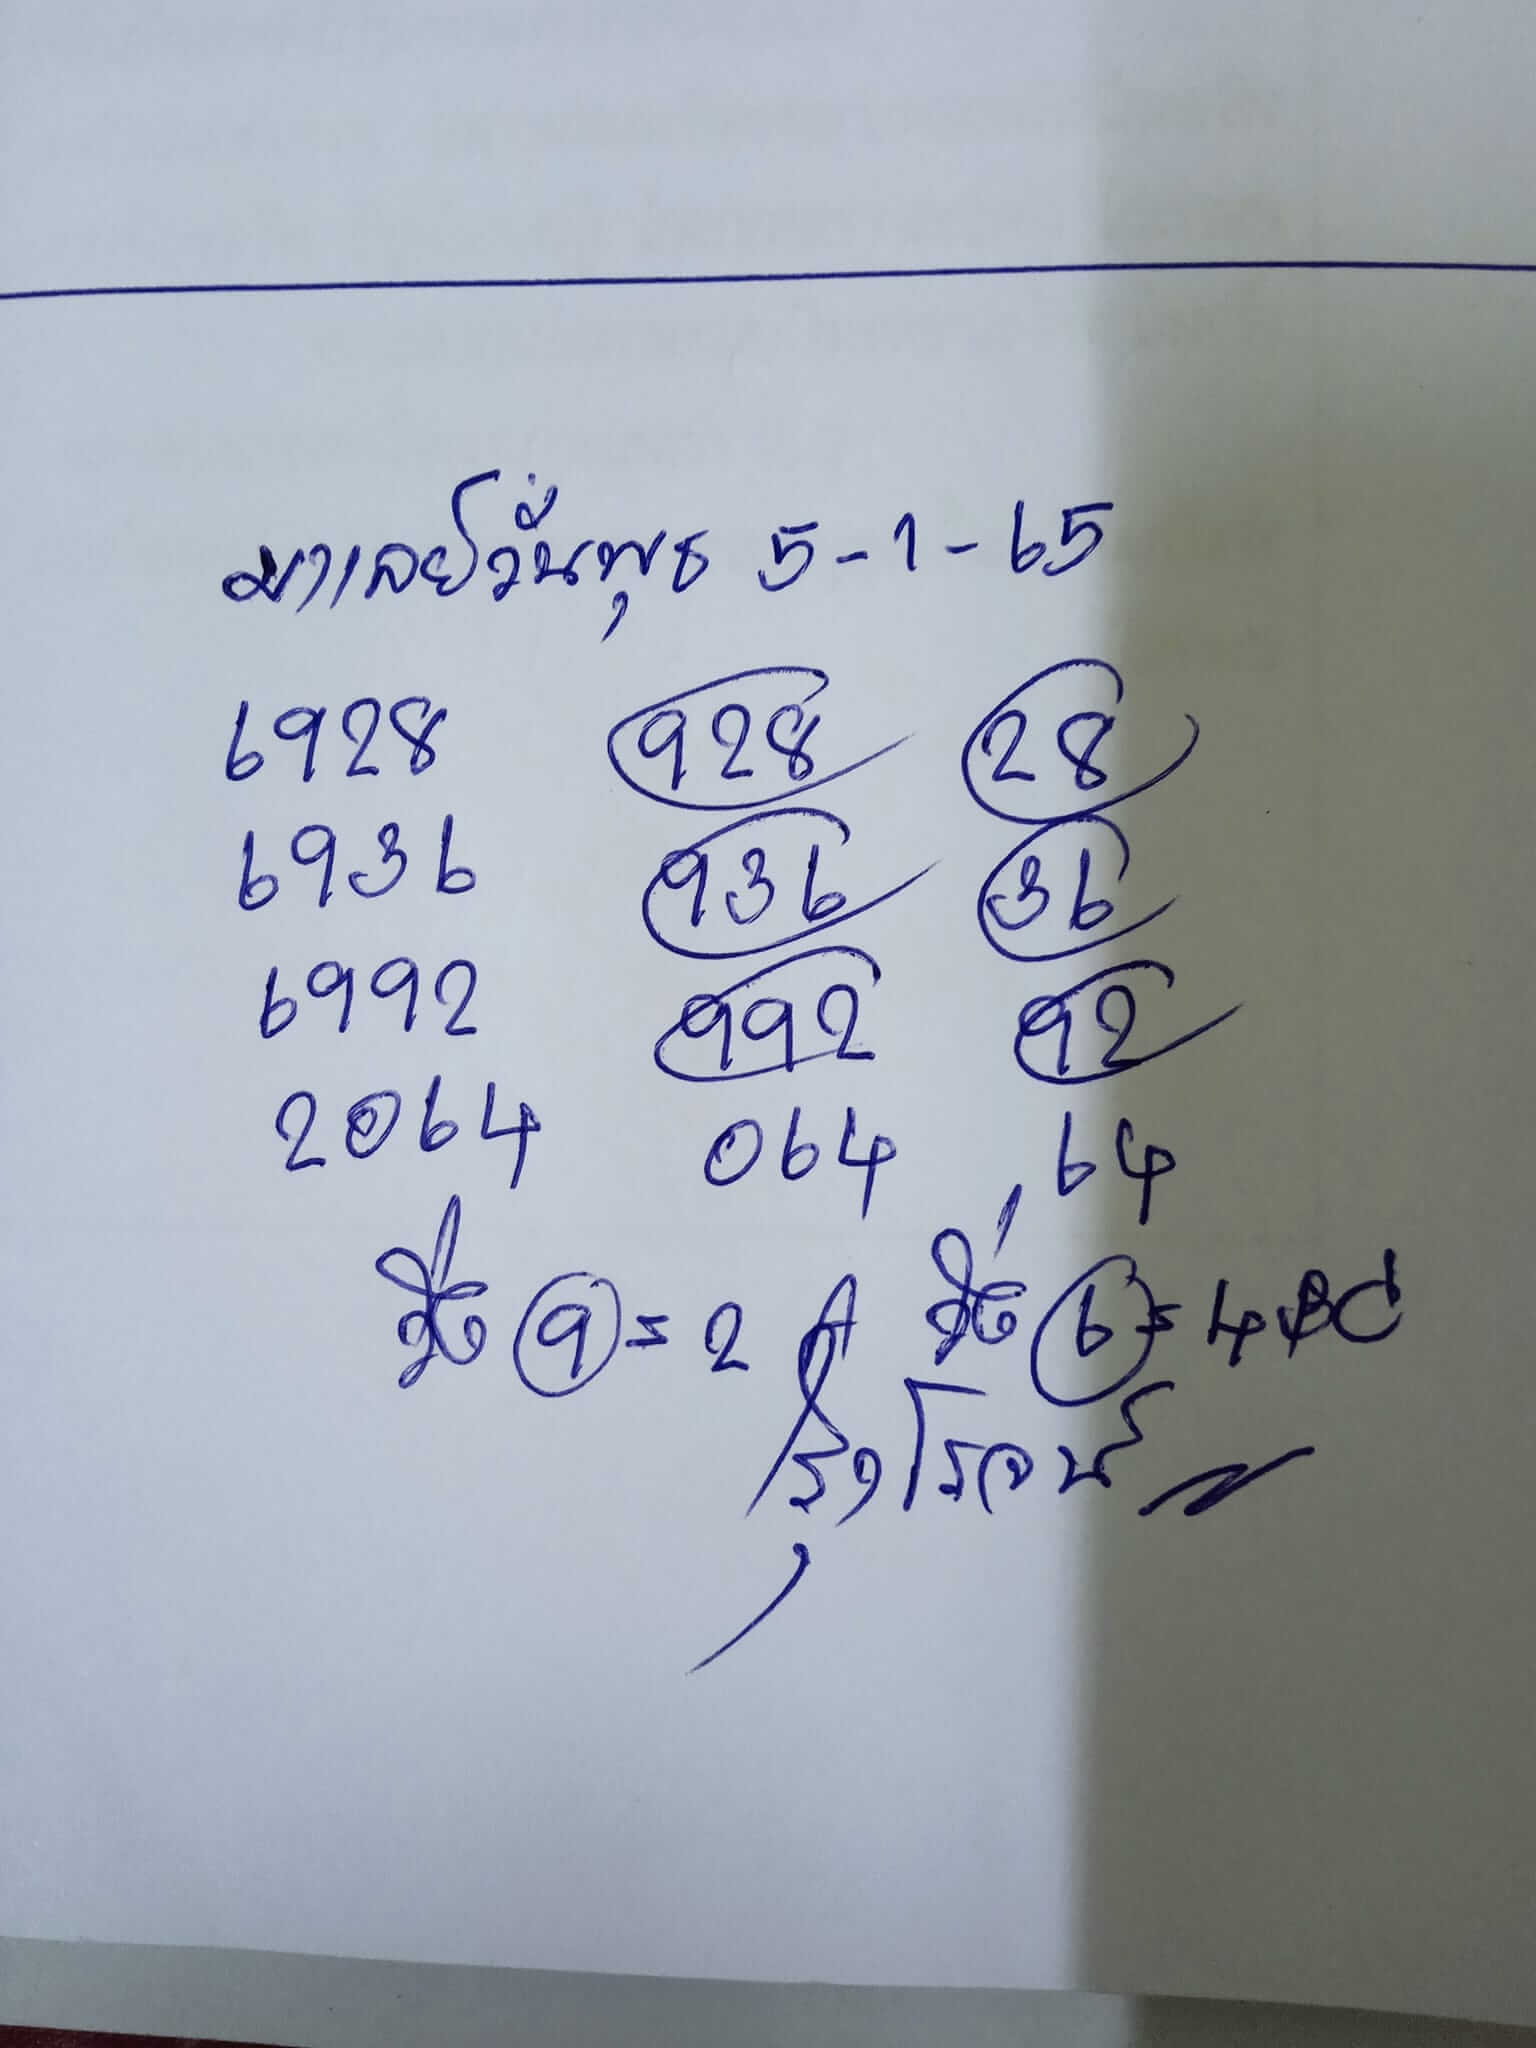 มาเลย์วันพุธ 5-1-65
6928 928 28
6936 936 36
6992 992 92
2064 064 64
วิ่ง 9 = 2 A วิ่ง 6 = 4 BC
รุ่งโรจน์